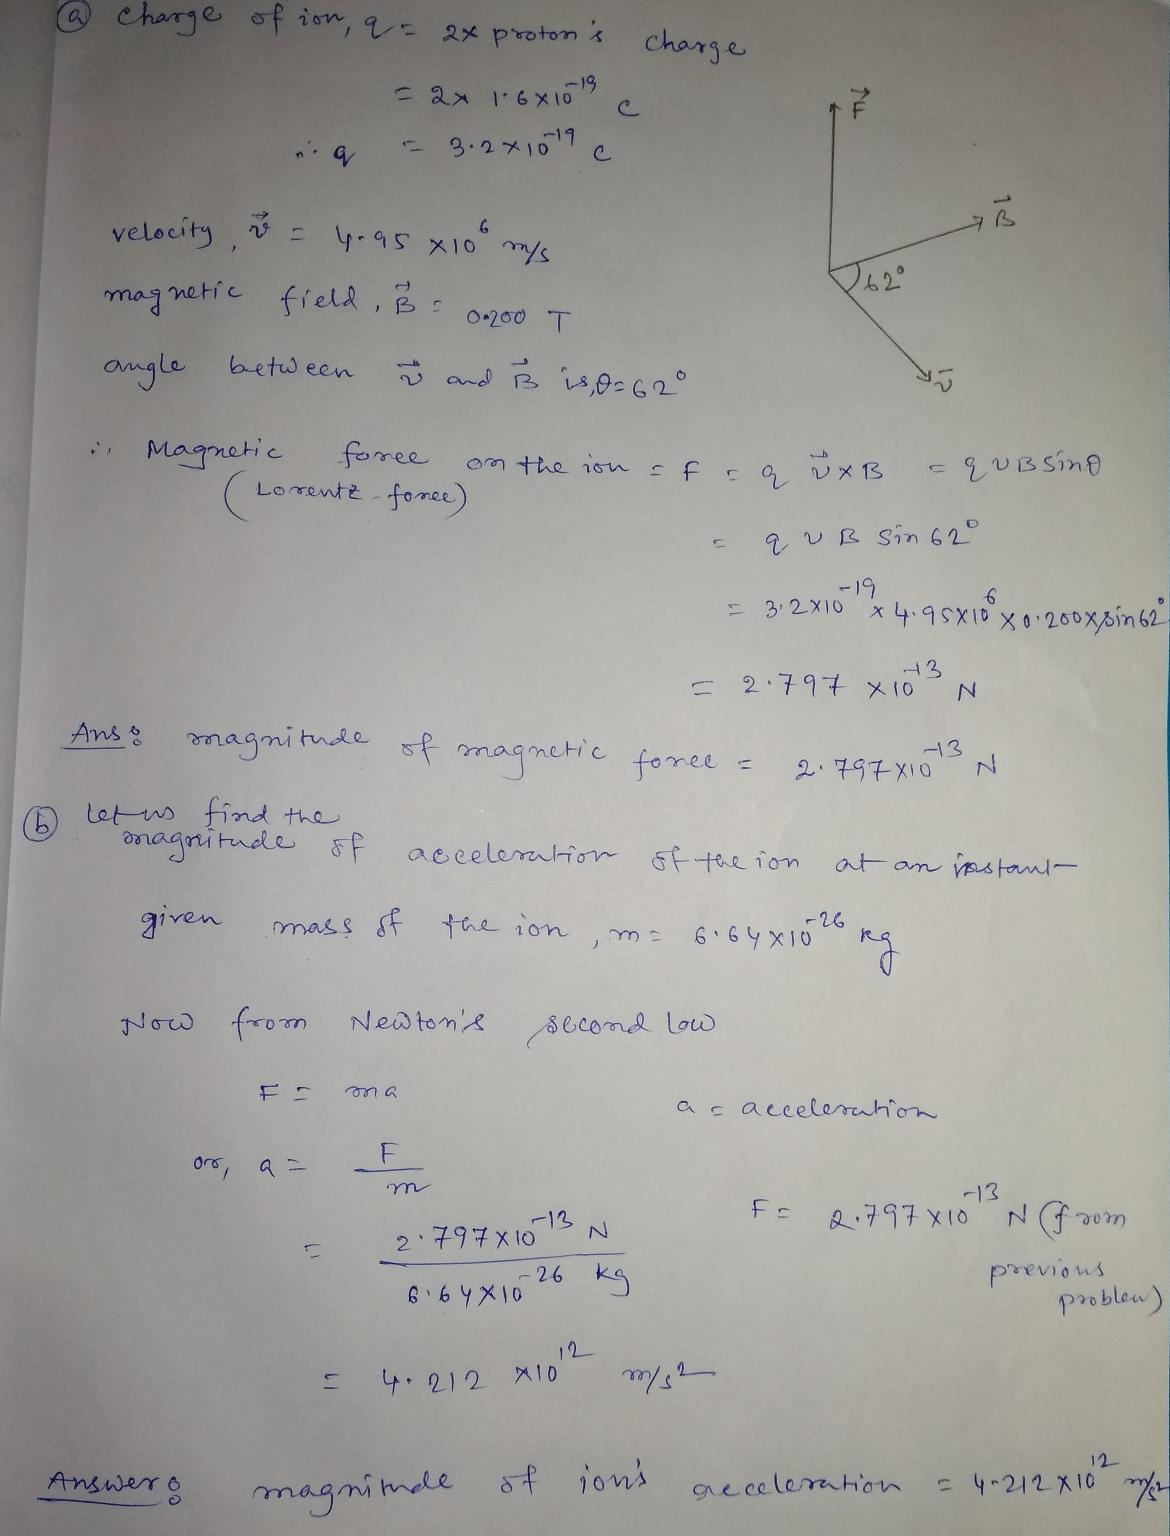 ⓐ charge of ion, q = 2x proton's charge
= 2x 1.6x10⁻¹⁹ C
∴ q = 3.2x10⁻¹⁹ C
F⃗
B⃗
62°
v⃗
velocity, v⃗ = 4.95 x10⁶ m/s
magnetic field, B⃗ = 0.200 T
angle between v⃗ and B⃗ is, θ=62°
∴ Magnetic force on the ion = F = q v⃗xB = qvBsinθ
(Lorentz-force)
= q v B Sin 62°
= 3.2x10⁻¹⁹ x 4.95x10⁶ x 0.200x sin62°
= 2.797 x10⁻¹³ N
Ans: magnitude of magnetic force = 2.797x10⁻¹³ N
ⓑ let us find the
magnitude of acceleration of the ion at an instant
given mass of the ion, m= 6.64x10⁻²⁶ kg
Now from Newton's second low
F = ma
a = acceleration
or, a = F/m
F = 2.797x10⁻¹³ N (from
previous
problem)
= 2.797x10⁻¹³ N / 6.64x10⁻²⁶ kg
= 4.212 x10¹² m/s²
Answer: magnitude of ion's acceleration = 4.212x10¹² m/s²